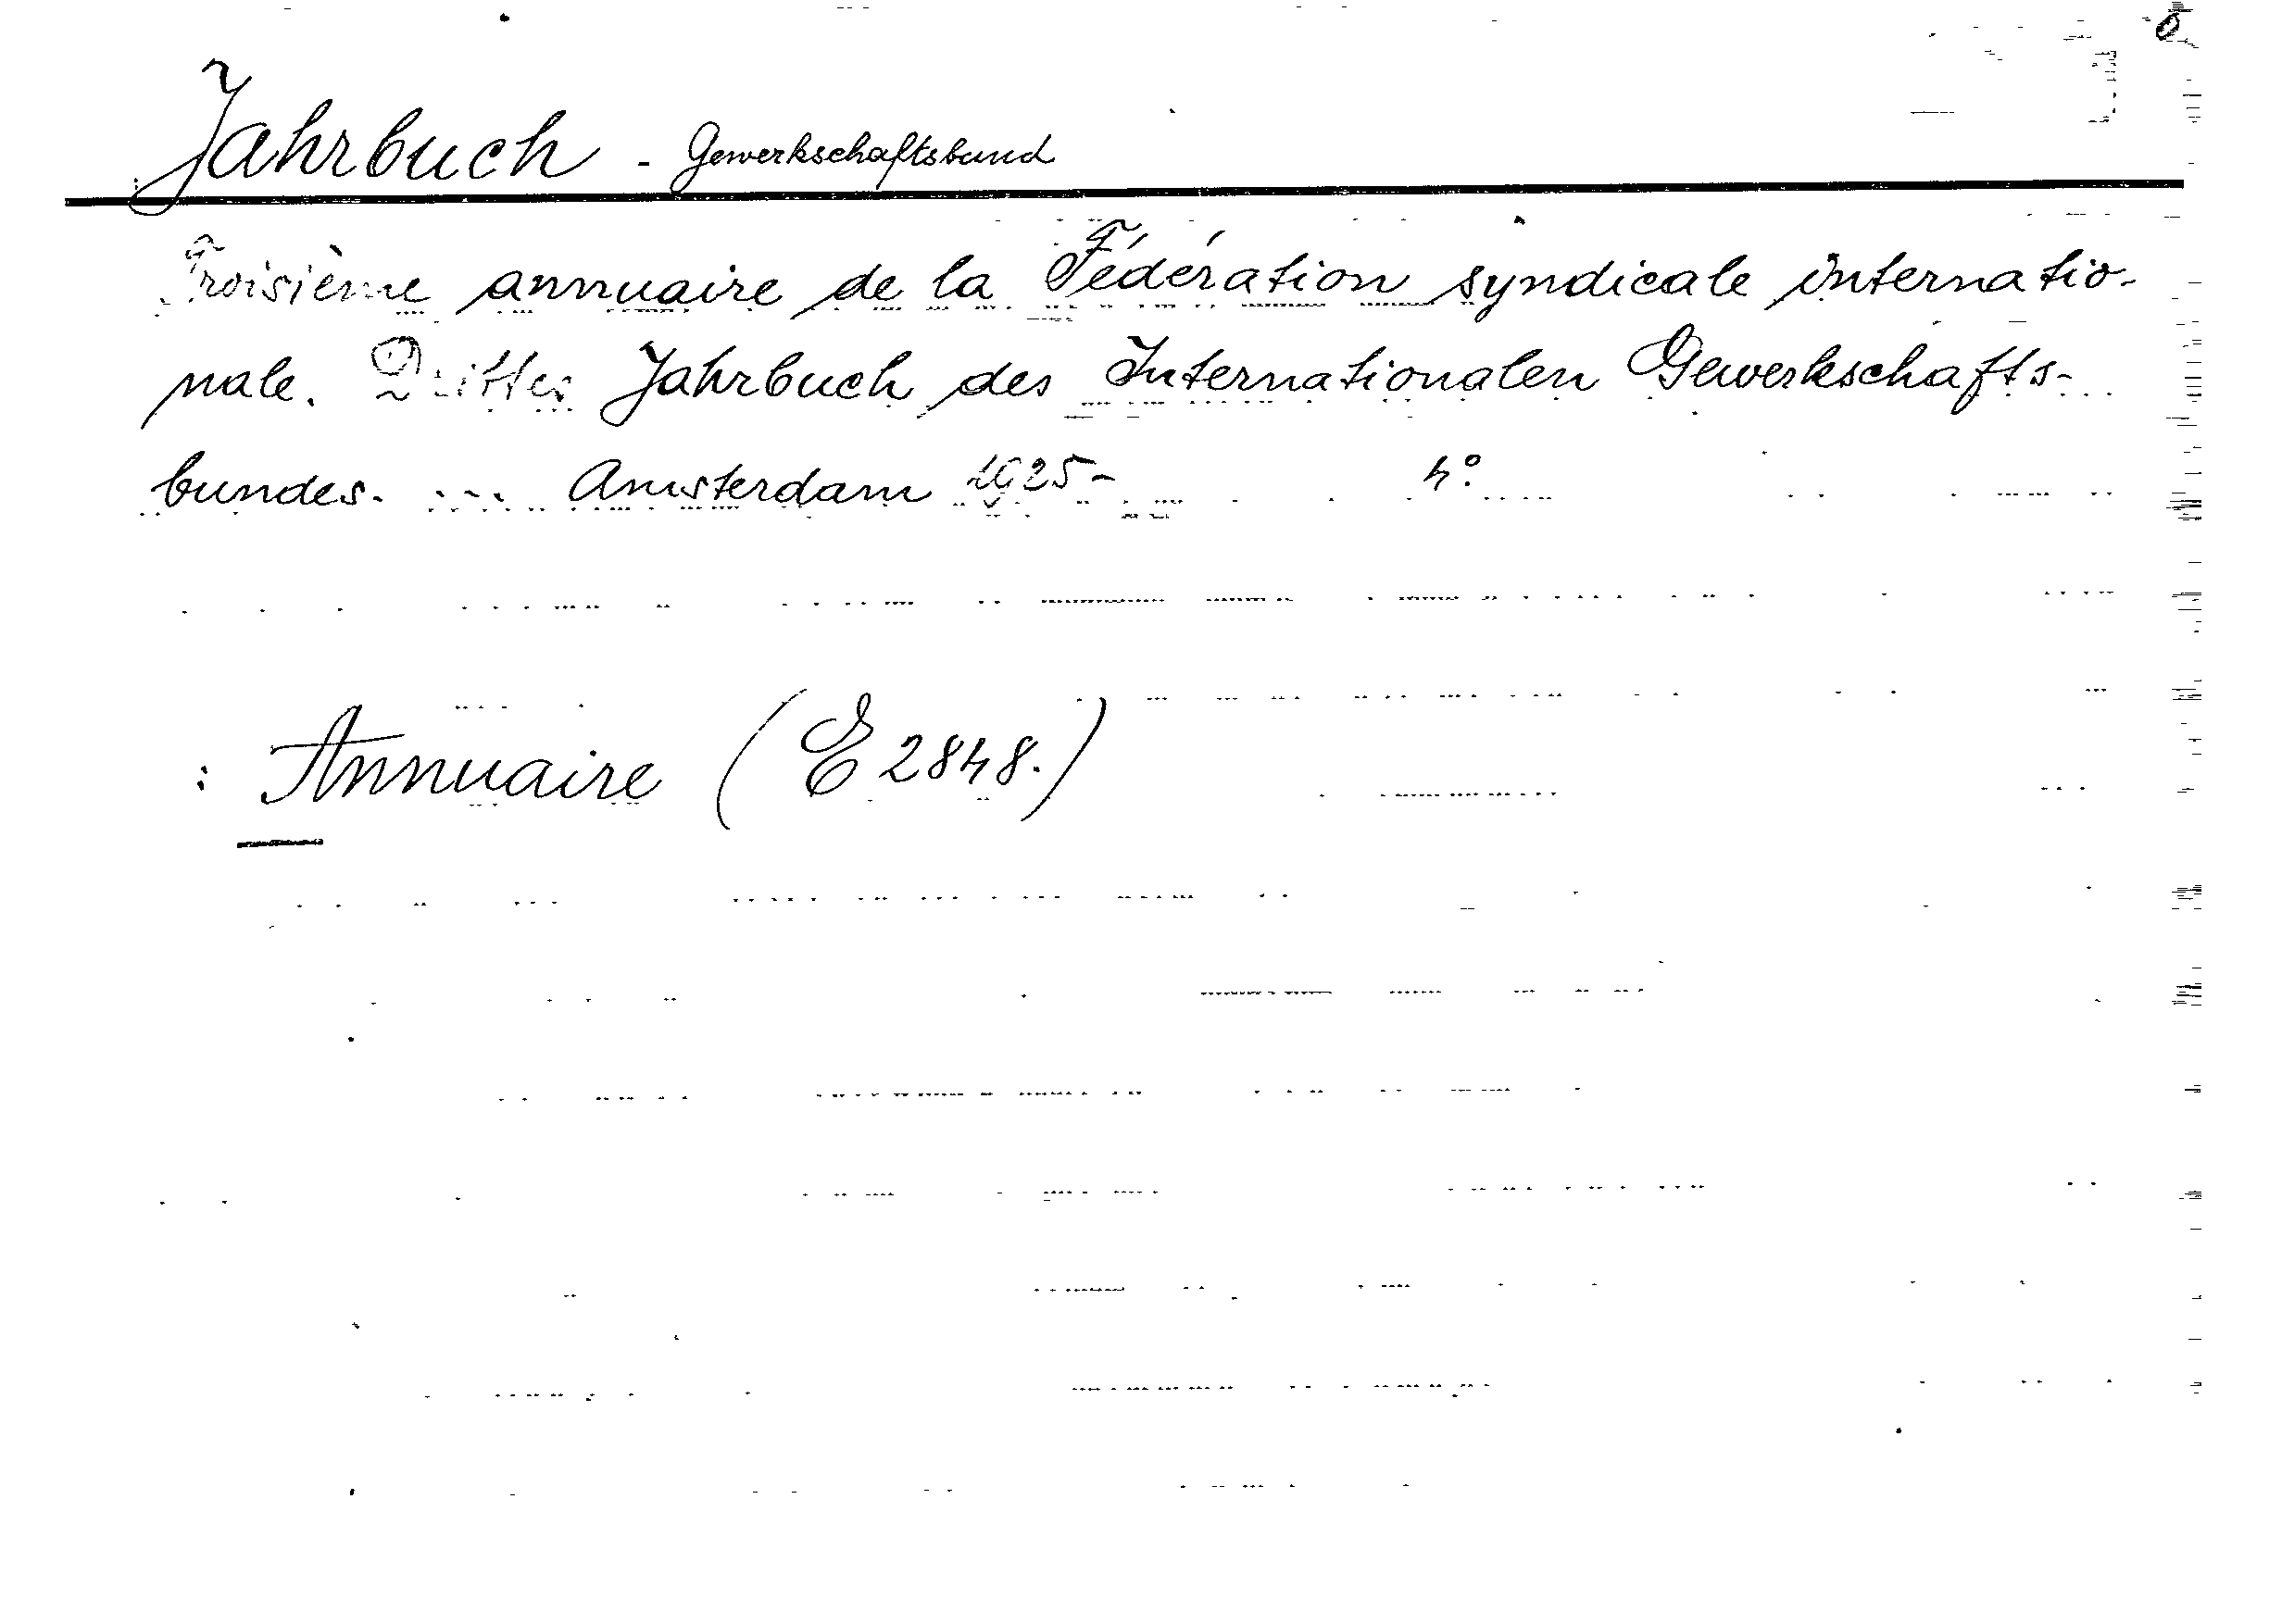 Jahrbuch - Gewerkschaftsbund
Troisième annuaire de la Fédération syndicale internatio-
nale. Drittes Jahrbuch des Internationalen Gewerkschafts-
bundes. ... Amsterdam 1925- 4°
: Annuaire (E 2848.)